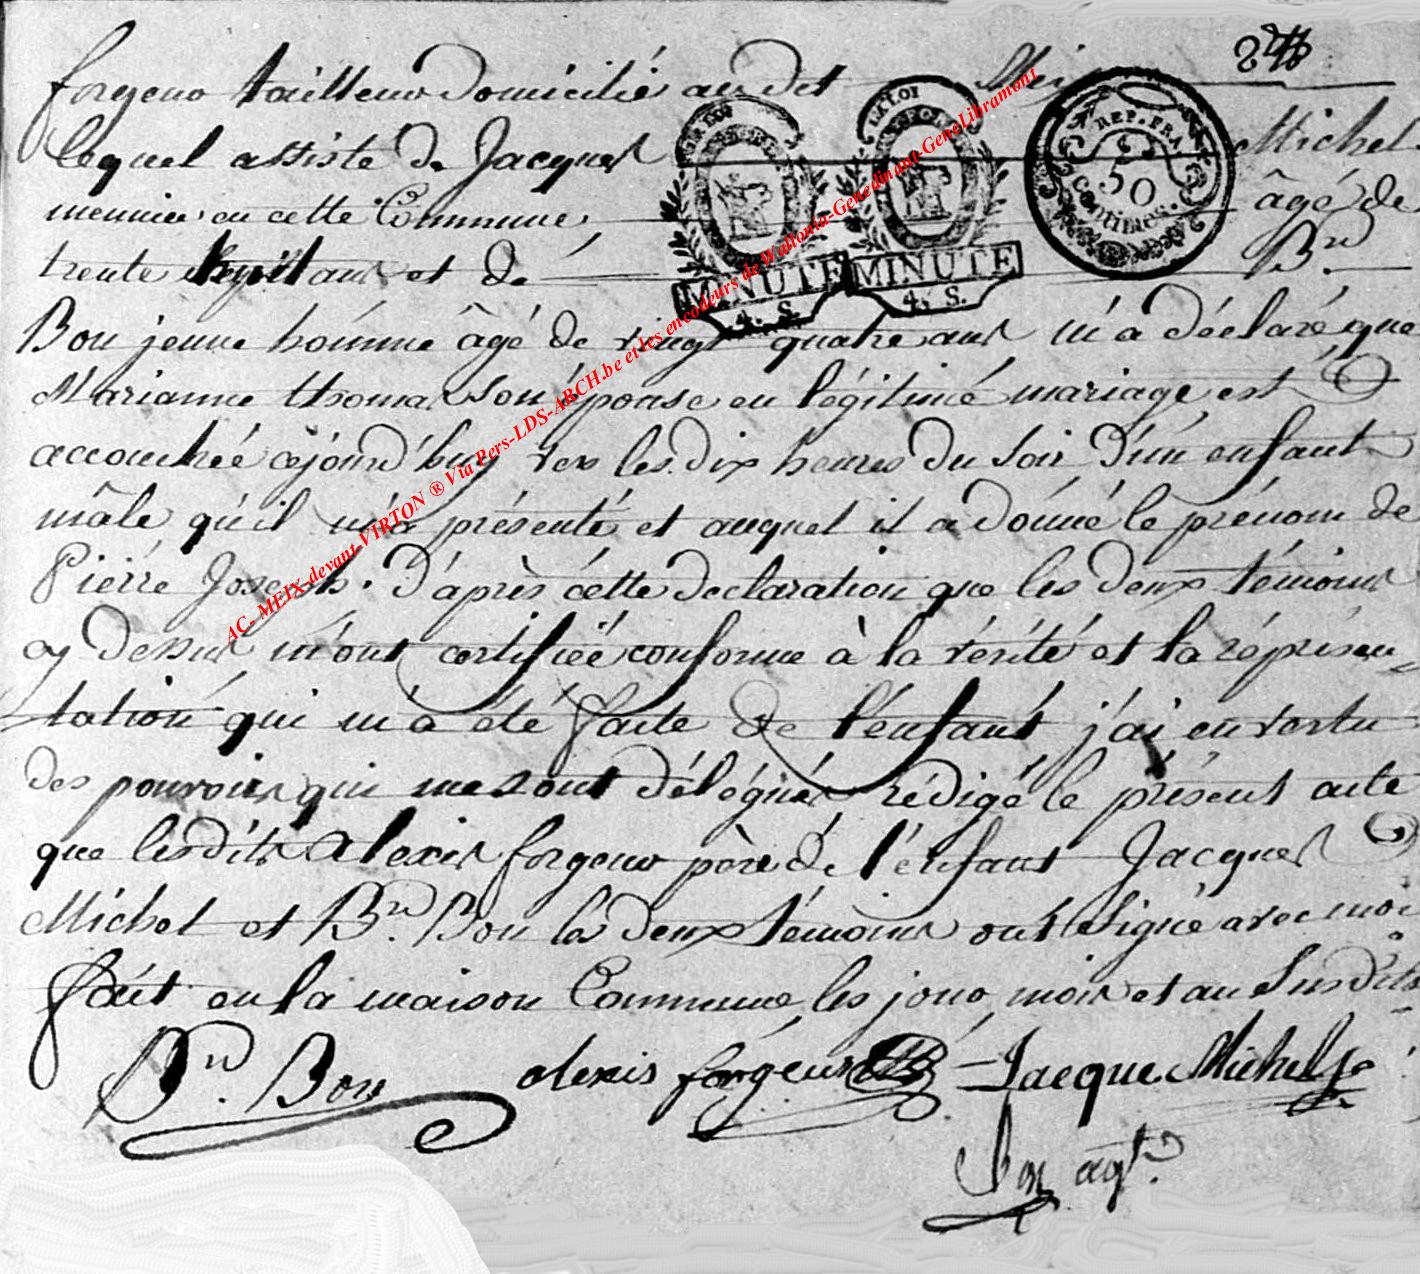 forgeur tailleur domicilié au dit Meix
lequel assisté de Jacques Michel
meunier en cette Commune, âgé de
trente sept ans et de Bn
Bon jeune homme âgé de vingt quatre ans m'a déclaré que
Marianne thomas son épouse en légitime mariage est
accouchée cejourd'huy vers les dix heures du soir d'un enfant
mâle qu'il m'a présenté et auquel il a donné le prénom de
Pierre Joseph. D'après cette declaration que les deux témoins
cy dessus m'ont certifiée conforme à la vérité et la représen-
tation qui m'a été faite de l'enfant j'ai en vertu
des pouvoirs qui me sont délégués rédigé le présent acte
que lesdits alexis forgeur père de l'enfant Jacques
Michel et Bn. Bon les deux témoins ont signé avec moi
fait en la maison Commune, les jour, mois et an susdits
Bn. Bon alexis forgeur Jacque Michel
agt.
LA LOI
MINUTE
4. S.
MINUTE
4. S.
REP. FRA.
50
Centimes.
AC. MEIX-devant-VIRTON ® Via Pers-LDS-ARCH.be et les encodeurs de Wallonia-Genedinant-GeneLibramont